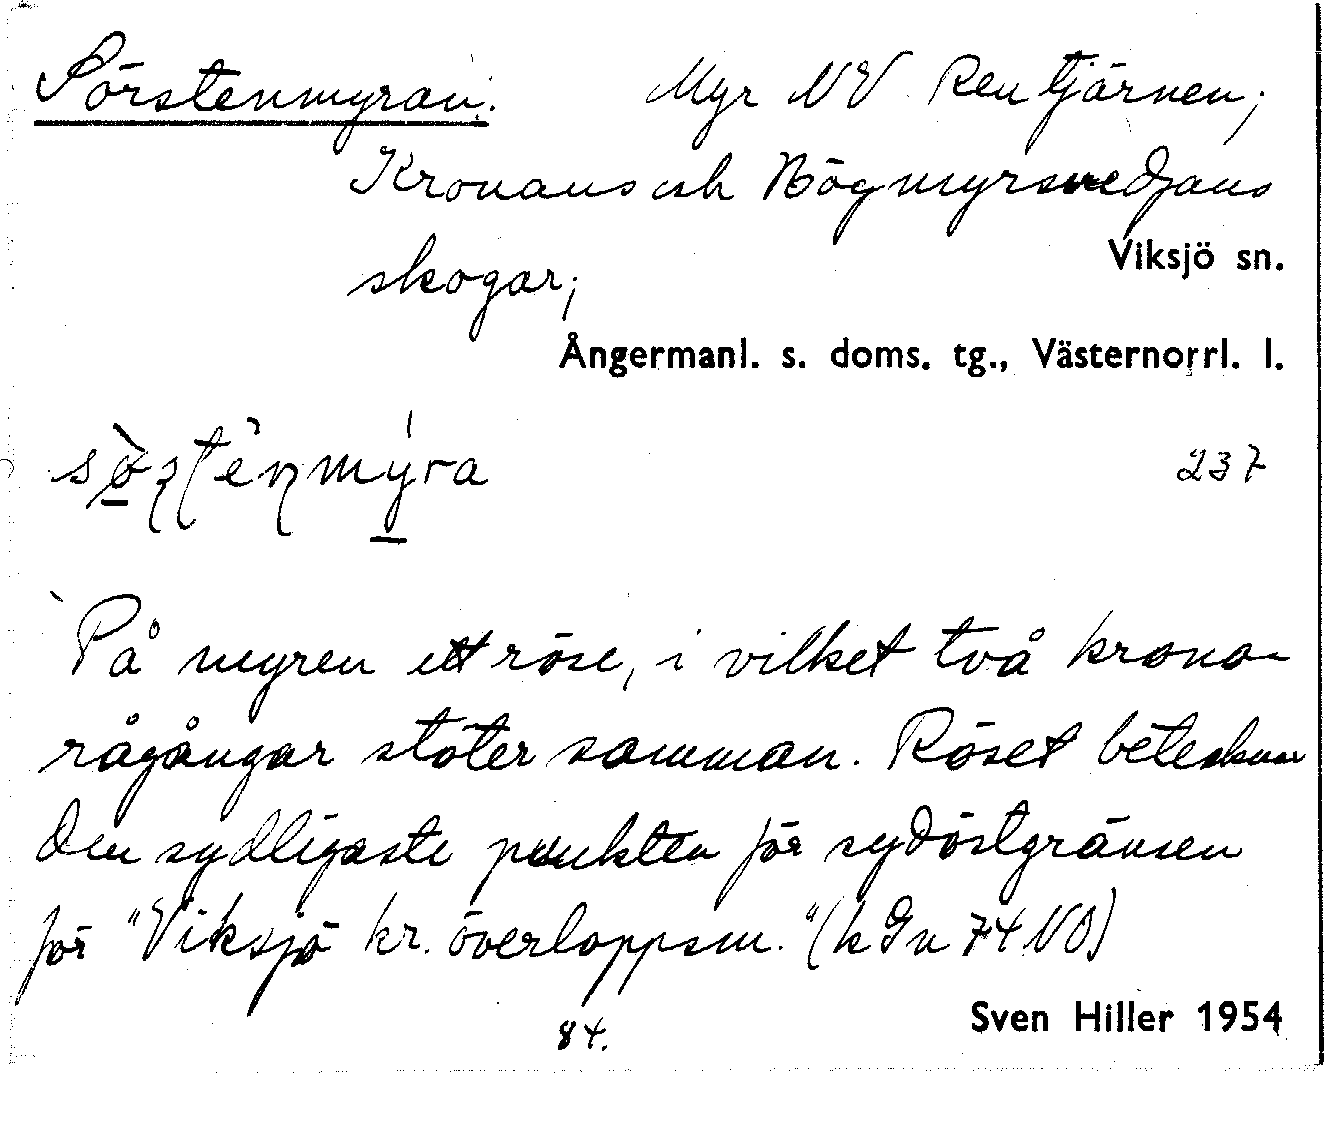 Sörstenmyran.   Myr NV Rentjärnen;
Kronans och Högmyrsvedjans
skogar;   Viksjö sn.
Ångermanl. s. doms. tg., Västernorrl. l.
237
På myren ett röse, i vilket två krono-
rågångar stöter samman. Röset betecknar
den sydligaste punkten för sydöstgränsen
för "Viksjö kr. överloppsm." (k Gn 74 NO)
84.   Sven Hiller 1954